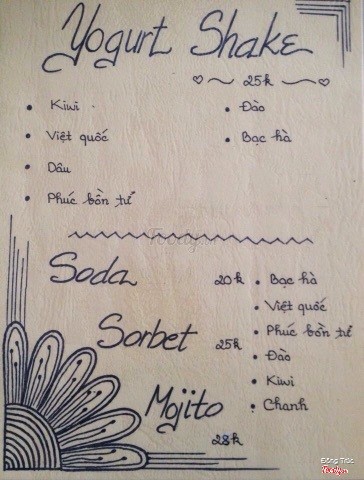 Yogurt Shake
25k
• Kiwi
• Việt quốc
• Dâu
• Phúc bồn tử
• Đào
• Bạc hà
Foody.vn
Soda 20k
Sorbet 25k
Mojito 28k
• Bạc hà
• Việt quốc
• Phúc bồn tử
• Đào
• Kiwi
• Chanh
Đông Trúc
Foody.vn